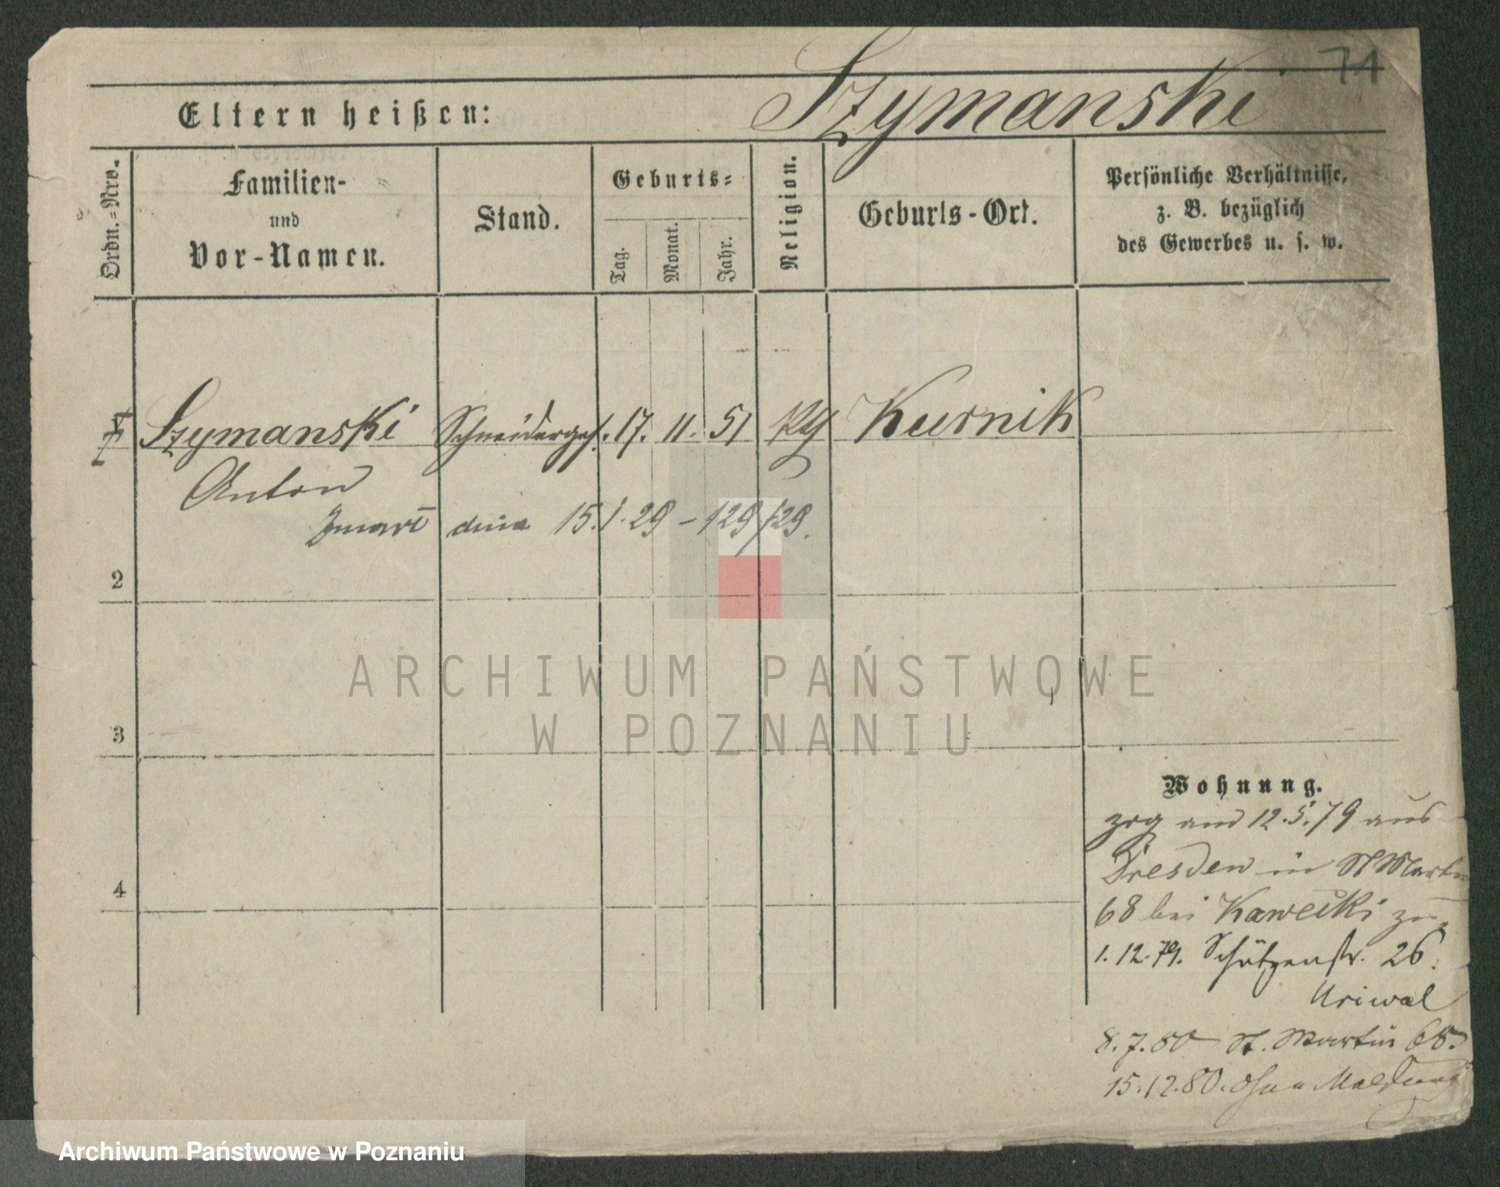 71
Eltern heißen: Szymanski
Ordn.-Nro.
Familien-
und
Vor-Namen.
Stand.
Geburts-
Tag.
Monat.
Jahr.
Religion.
Geburts-Ort.
Persönliche Verhältnisse,
z. B. bezüglich
des Gewerbes u. s. w.
Szymanski Schneiderges. 17. 11. 51 Kurnik
Anton
Zmarł dnia 15.1.29 – 129/29.
2
3
4
ARCHIWUM PAŃSTWOWE
W POZNANIU
Wohnung.
zog am 12.5.79 aus
Dresden in St Martin
68 bei Kawecki zu
1.12.79. Schützenstr. 26.
Uriwal
8.7.80 St. Martin 68.
15.12.80. ohne Meldung
Archiwum Państwowe w Poznaniu